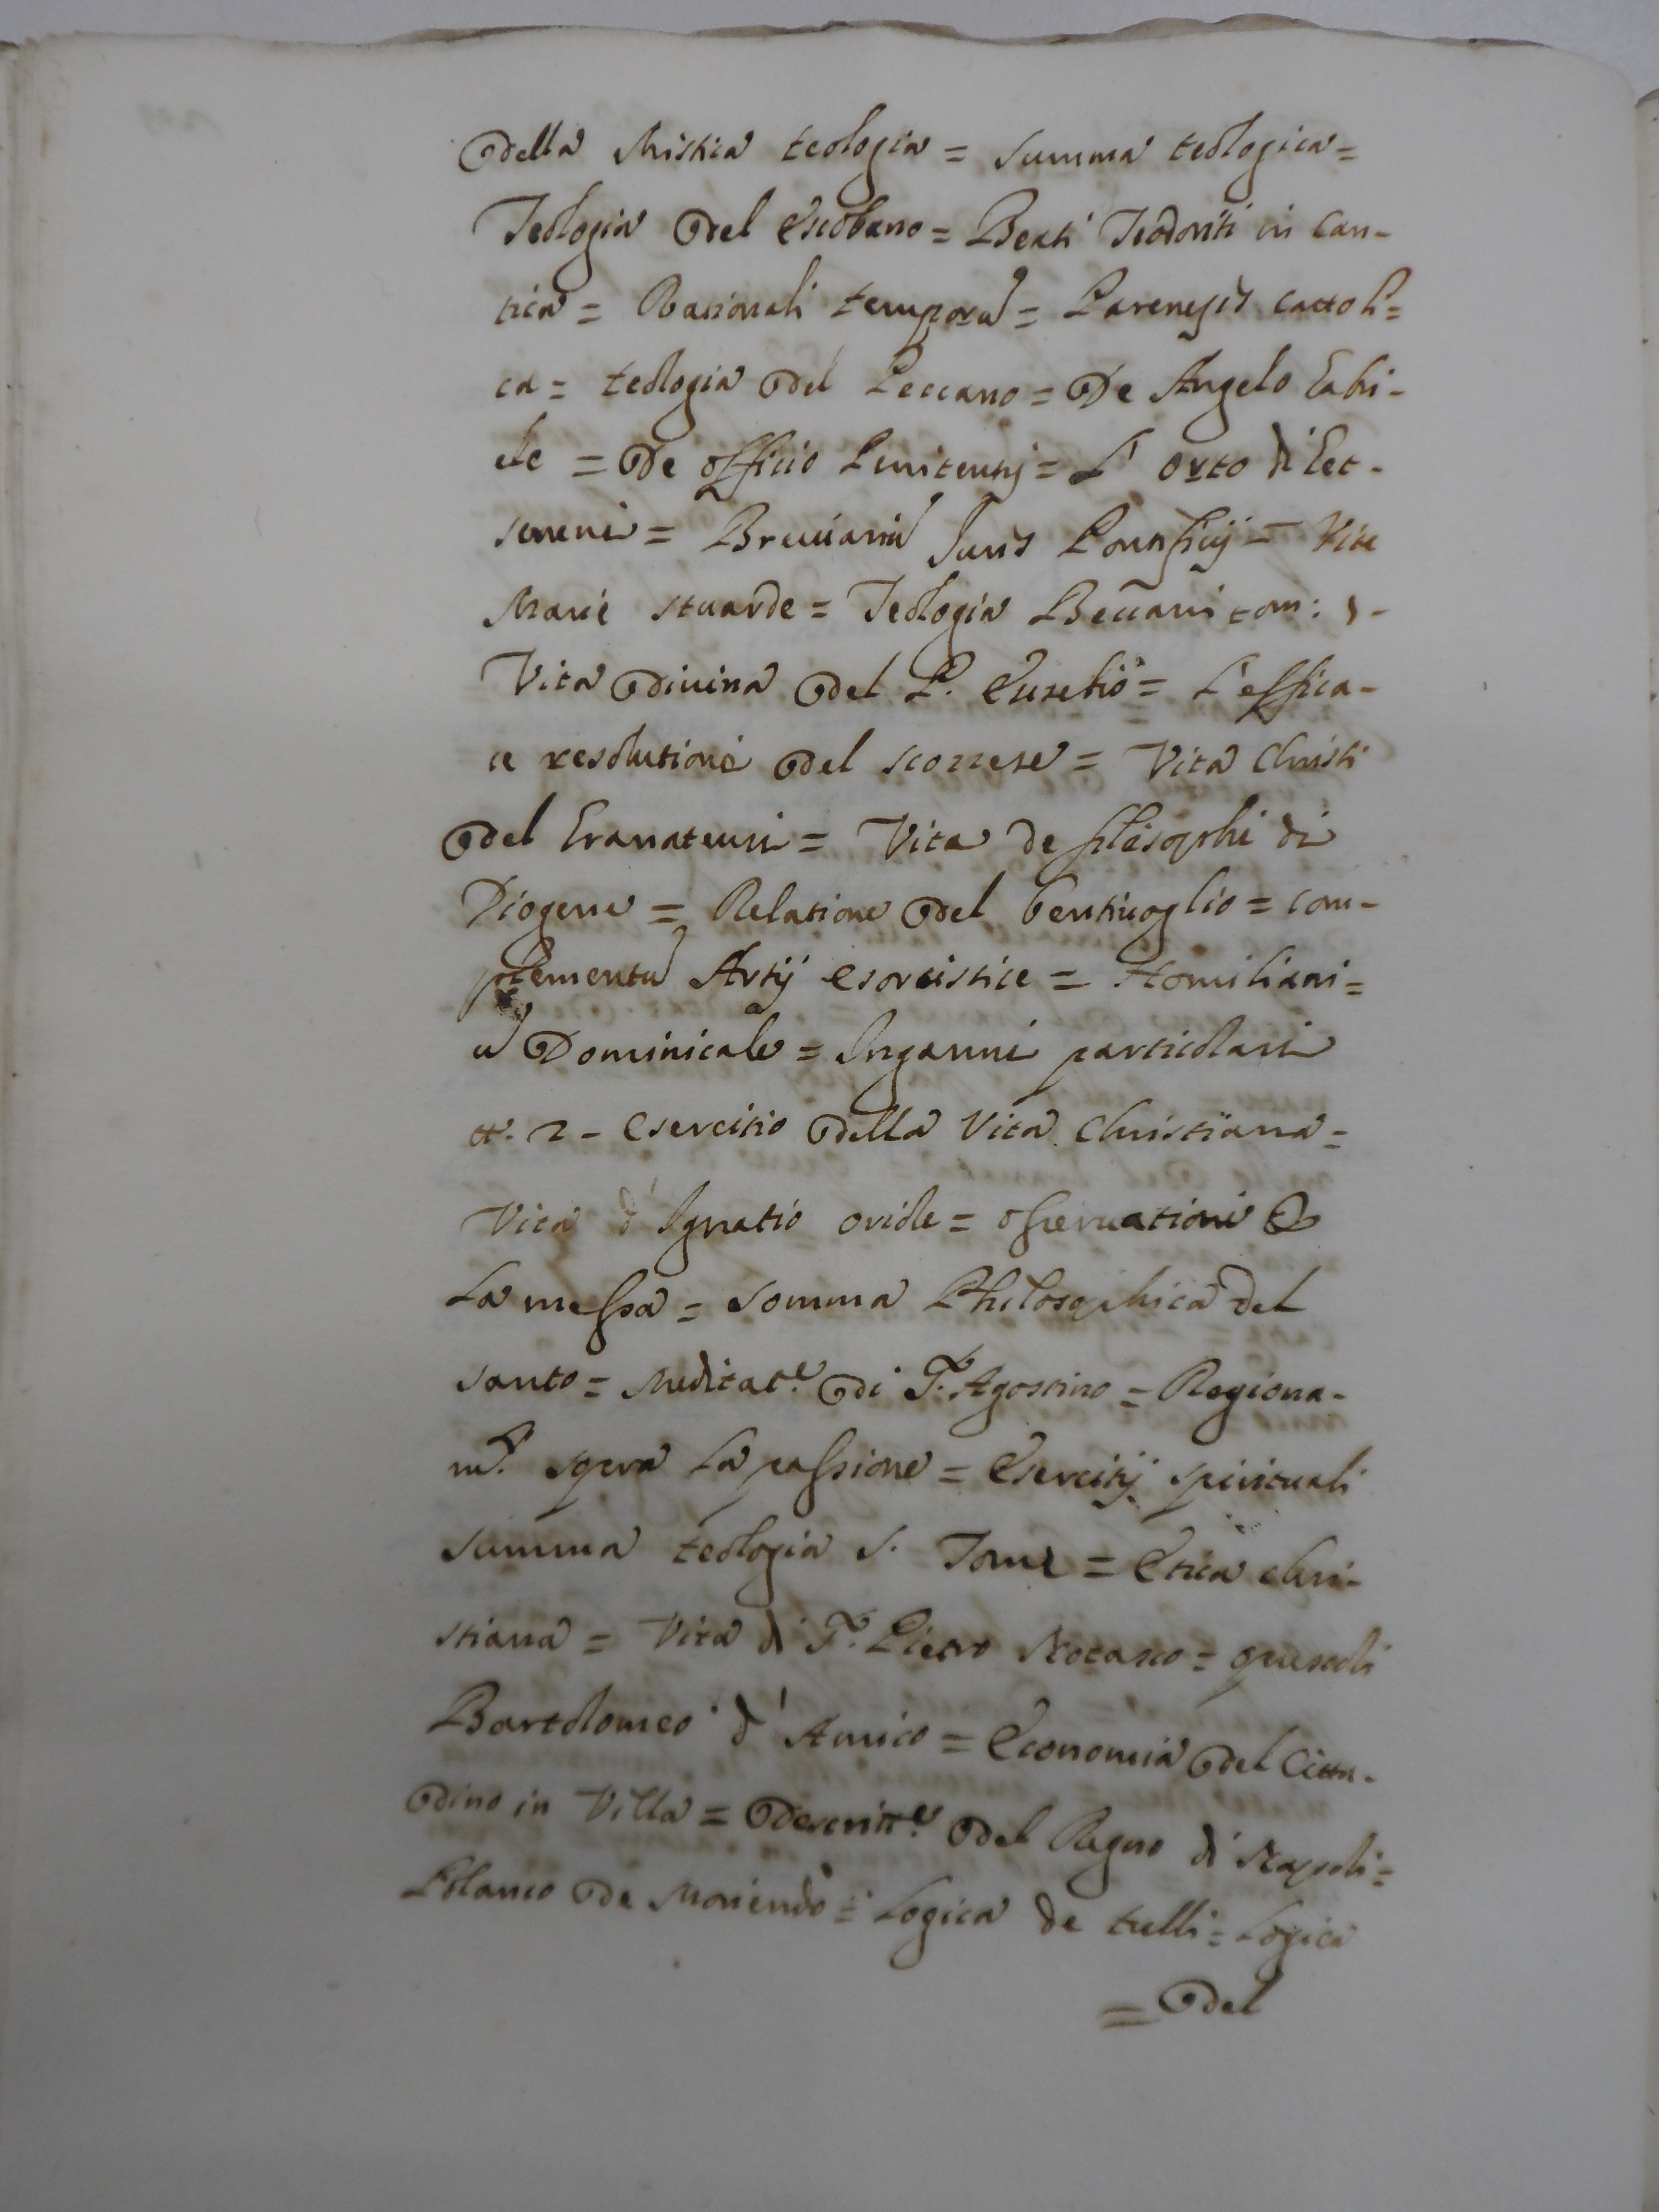 della Mistica teologia = summa teologica =
Teologia del Escobano = Beati Teodoriti in Can-
tica = Rationali temporũ = Parenesis cattoli=
ca = teologia del Peccano = De Angelo
= De officio Penitentis = L' orto di Get-
semeni = Breviariũ Juris Pontificij = Vite
Marie stuarde = Teologia Beccani tom:
Vita divina del P. Eusebio = L'effica-
ce resolutione del scozzese = Vita Christi
del Granatensi = Vita de filosophi di
Diogene = Relatione del bentivoglio = com-
plementũ Artis esorcistice = Homiliari=
ũ Dominicale = Inganni particolari
tt. 2 - Esercitio della Vita Christiana =
Vita d' Ignatio = osservationi &
La messa = somma Philosophica del
santo = Meditat.e di S. Agostino = Ragiona-
m.ti sopra La passione = Esercitij spirituali
summa teologia S. Tome = Etica chri-
stiana = Vita di S. Pietro Notasco = opuscoli
Bartolomeo d' Amico = Economia del Citta-
dino in Villa = Descritt.e del Regno di Napoli =
Polanco de Moriendo = Logica de tulli = Logica
= del